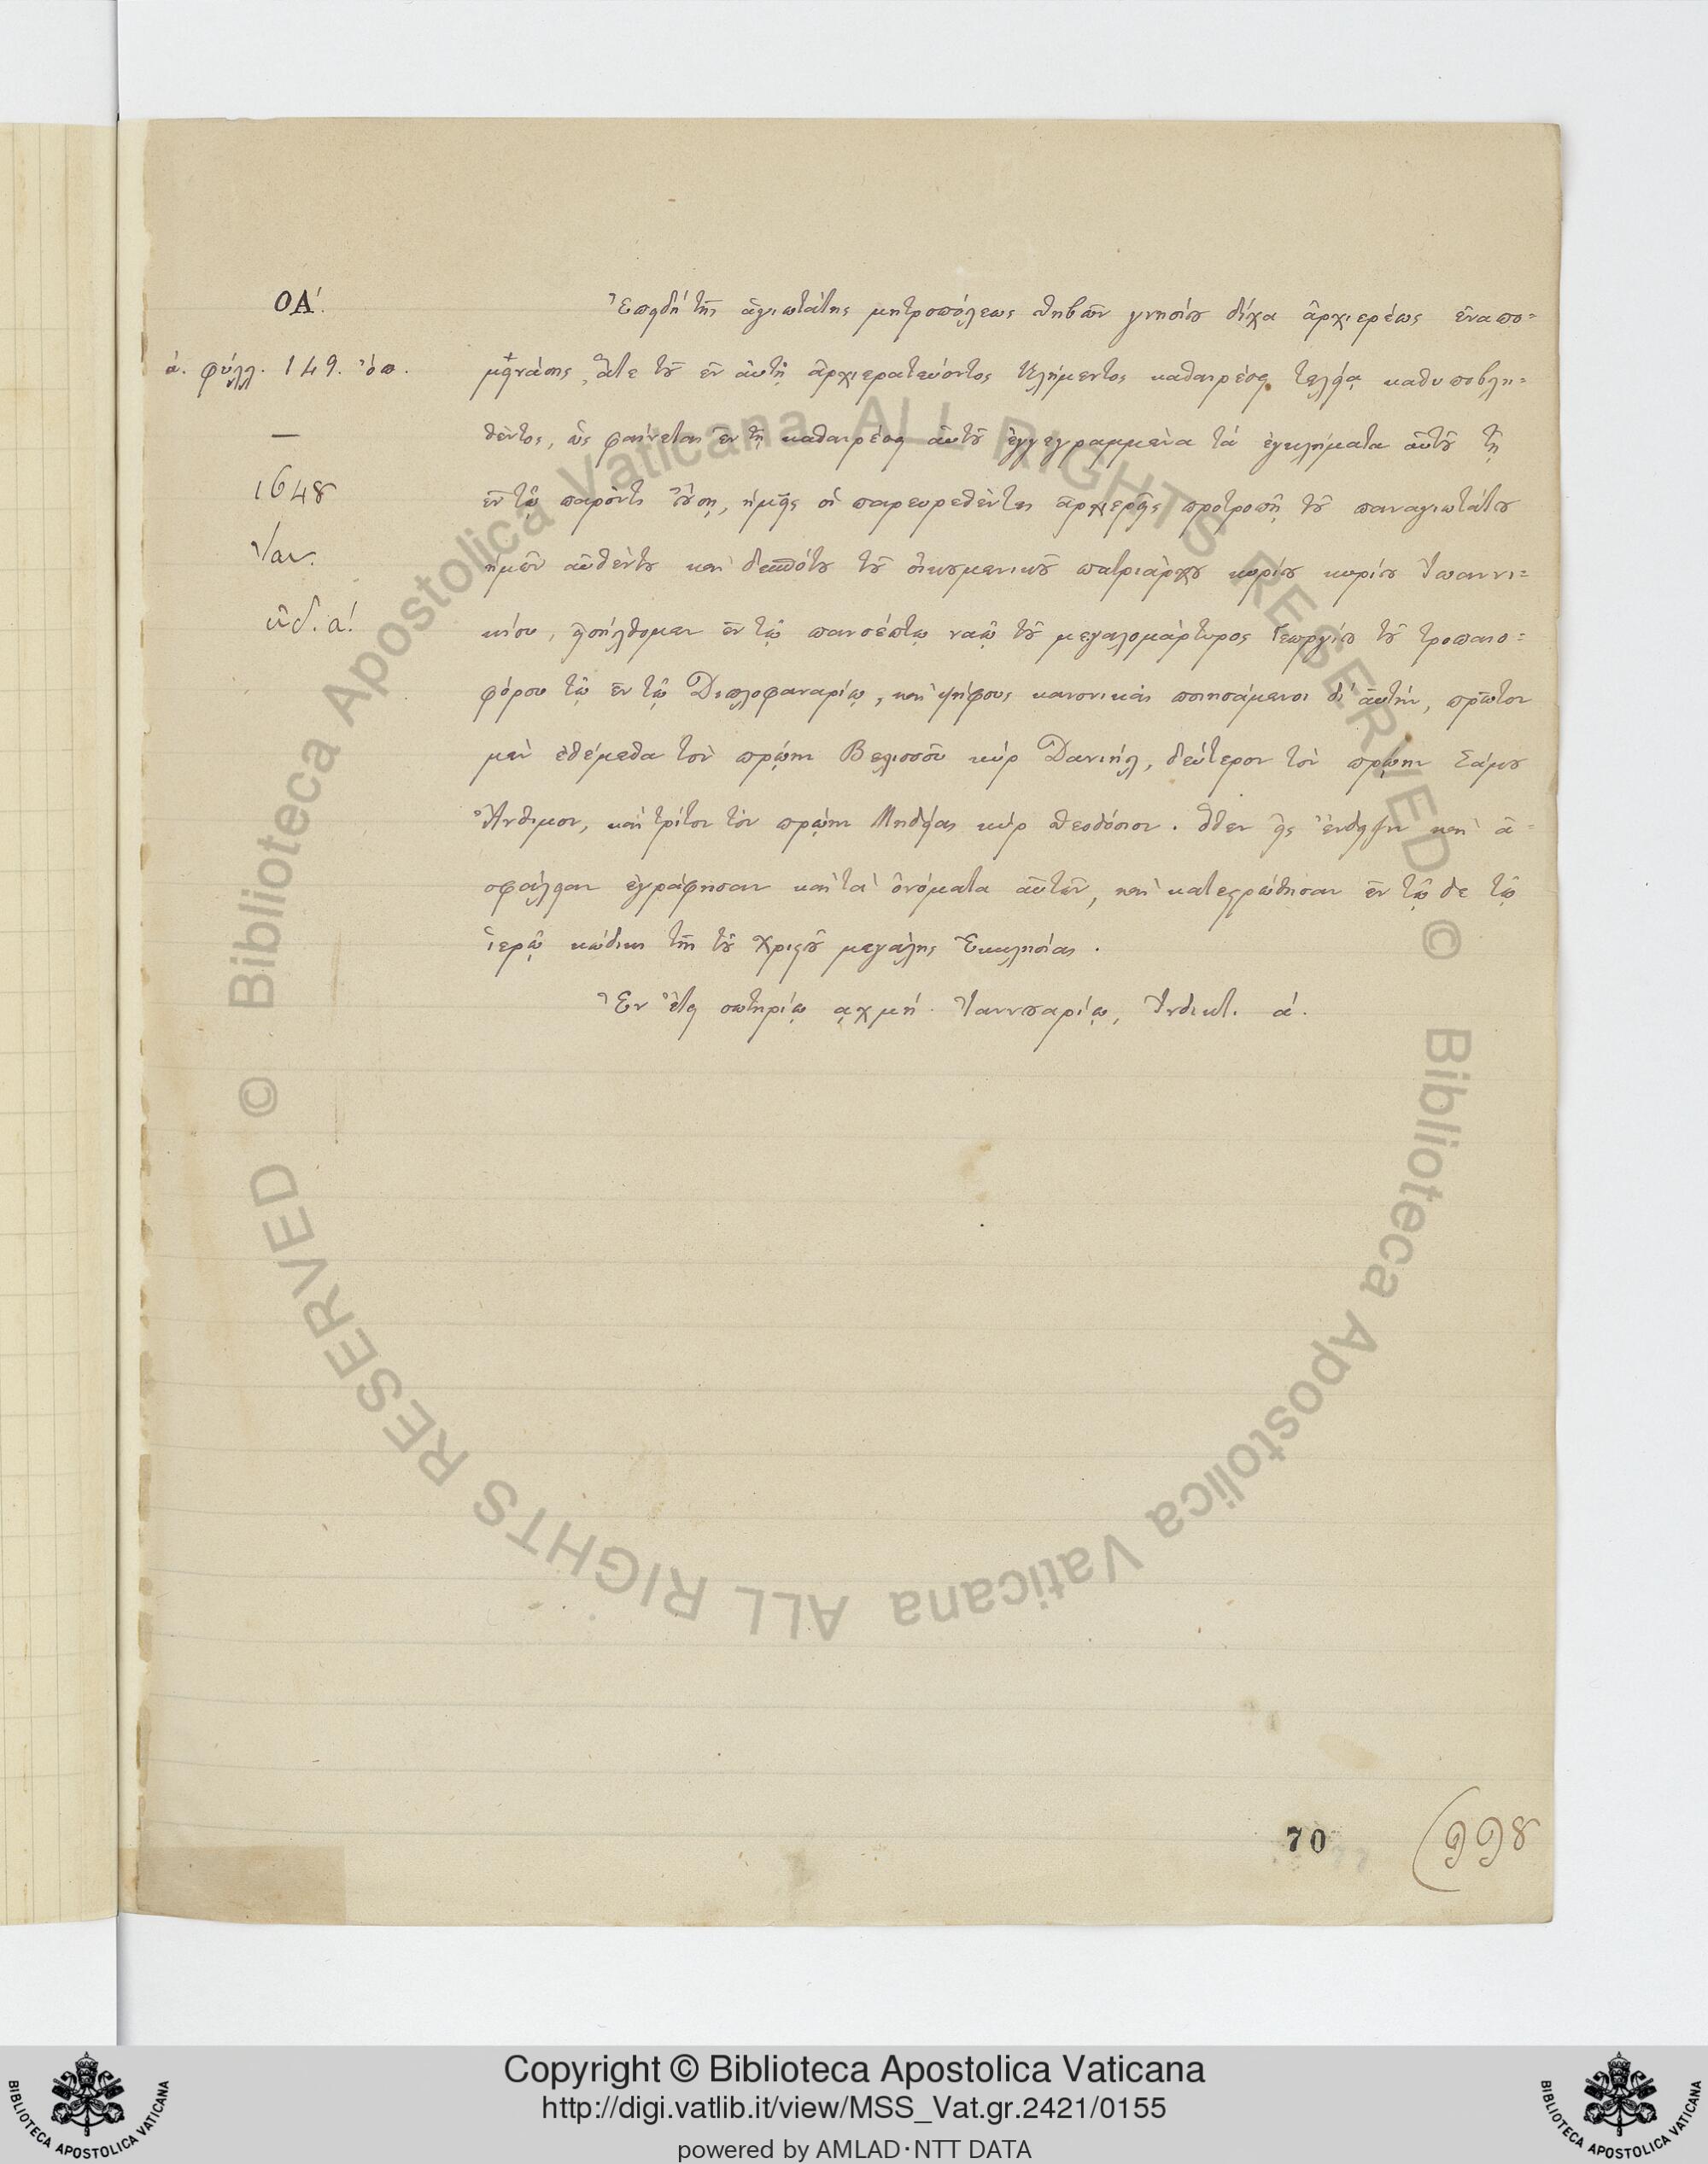 ΟΑ΄.
ά. φύλλ. 149. ὄπ.
—
1648
Ἰαν.
ἰνδ. α΄.
Ἐπειδὴ τῆς ἁγιωτάτης μητροπόλεως Θηβῶν γνησίου δίχα ἀρχιερέως ἐναπο=
μεινάσης, ἅτε τοῦ ἐν αὐτῇ ἀρχιερατεύοντος Κλήμεντος καθαιρέσει τελείᾳ καθυποβλη=
θέντος, ὡς φαίνεται ἐν τῇ καθαιρέσει αὐτοῦ ἐγγεγραμμένα τὰ ἐγκλήματα αὐτοῦ τῇ
ἐν τῷ παρόντι οὔσῃ, ἡμεῖς οἱ παρευρεθέντες ἀρχιερεῖς προτροπῇ τοῦ παναγιωτάτου
ἡμῶν αὐθέντου καὶ δεσπότου τοῦ οἰκουμενικοῦ πατριάρχου κυρίου κυρίου Ἰωαννι=
κίου, εἰσήλθομεν ἐν τῷ πανσέπτῳ ναῷ τοῦ μεγαλομάρτυρος Γεωργίου τοῦ τροπαιο=
φόρου τῷ ἐν τῷ Διπλοφαναρίῳ, καὶ ψήφους κανονικὰς ποιησάμενοι δι' αὐτήν, πρῶτον
μὲν ἐθέμεθα τὸν πρώην Βελισσοῦ κύρ Δανιήλ, δεύτερον τὸν πρώην Σάμου
Ἄνθιμον, καὶ τρίτον τὸν πρώην Μηδείας κύρ Θεοδόσιον. Ὅθεν εἰς ἔνδειξιν καὶ ἀ=
σφάλειαν ἐγράφησαν καὶ τὰ ὀνόματα αὐτῶν, καὶ κατεστρώθησαν ἐν τῷ δε τῷ
ἱερῷ κώδικι τῆς τοῦ Χριστοῦ μεγάλης Ἐκκλησίας.
Ἐν ἔτει σωτηρίῳ αχμή. Ἰαννουαρίῳ, Ἰνδικτ. ά.
70
998
© Biblioteca Apostolica Vaticana ALL RIGHTS RESERVED
© Biblioteca Apostolica Vaticana ALL RIGHTS RESERVED
Copyright © Biblioteca Apostolica Vaticana
http://digi.vatlib.it/view/MSS_Vat.gr.2421/0155
powered by AMLAD·NTT DATA
BIBLIOTECA APOSTOLICA VATICANA
BIBLIOTECA APOSTOLICA VATICANA